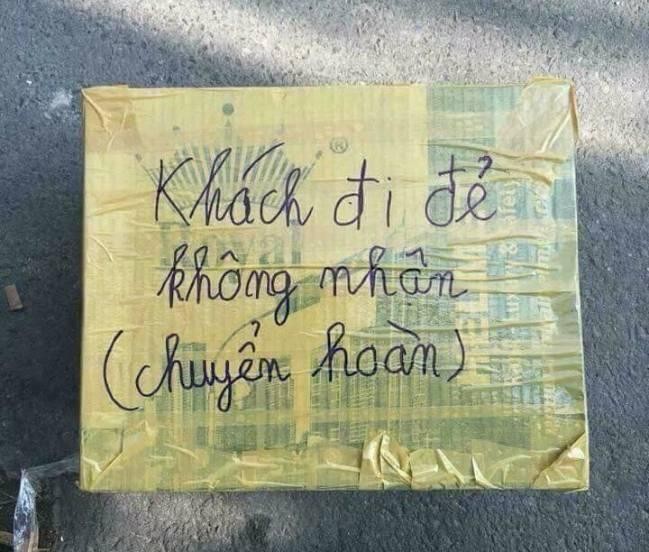 Khách đi đẻ
không nhân
(chuyển hoàn)